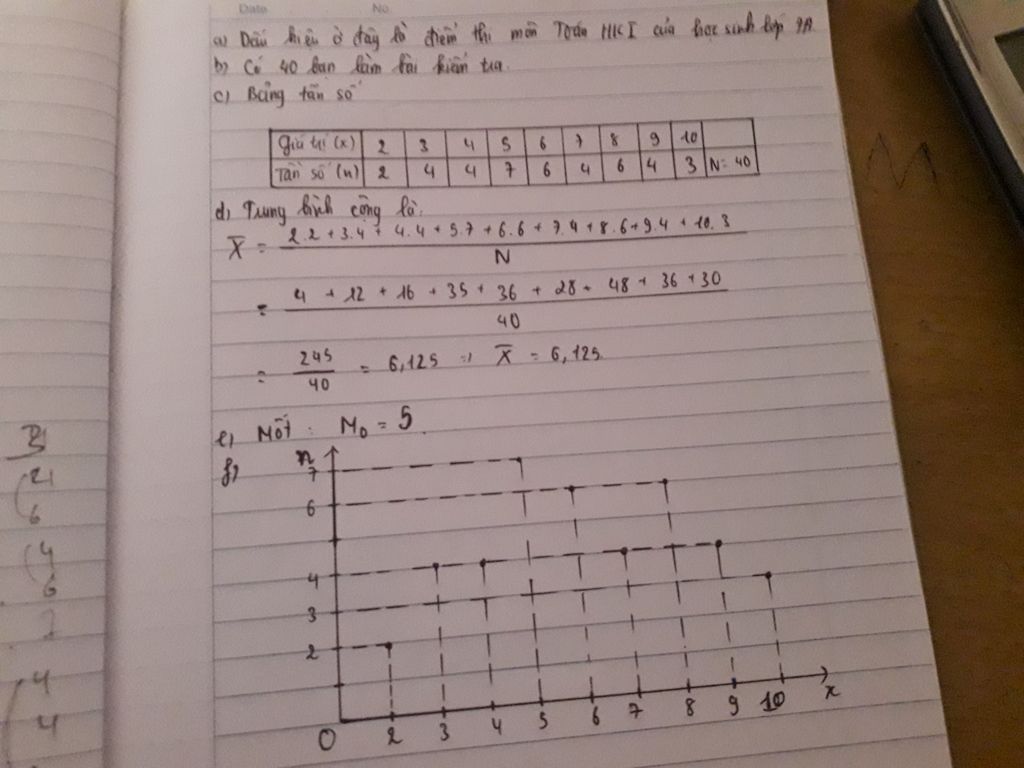 Date No
a) Dấu hiệu ở đây là điểm thi môn Toán HKI của học sinh lớp 7A
b) Có 40 bạn làm bài kiểm tra
c) Bảng tần số
Giá trị (x) 2 3 4 5 6 7 8 9 10
Tần số (n) 2 4 4 7 6 4 6 4 3 N=40
d) Trung bình cộng là:
X̄ = 2.2 + 3.4 + 4.4 + 5.7 + 6.6 + 7.4 + 8.6 + 9.4 + 10.3
N
= 4 + 12 + 16 + 35 + 36 + 28 + 48 + 36 + 30
40
= 245/40 = 6,125 => X̄ = 6,125
e) Mốt: M₀ = 5
f) n
7
6
4
3
2
0 2 3 4 5 6 7 8 9 10 x
21
6
4
6
4
4
M